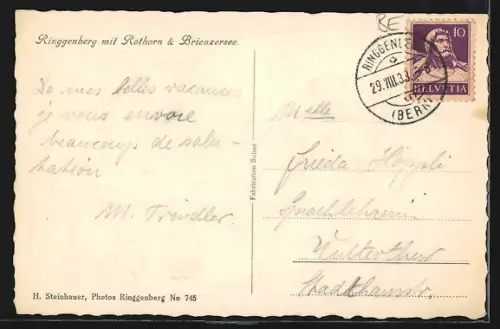 Ringgenberg mit Rothorn & Brienzersee
BE
10
HELVETIA
RINGGENBERG
29.VIII.33
(BERN)
De mes belles vacances
je vous envoie
beaucoup de salu-
tation
M. Trindler.
Melle
Frieda Höppli
Sprachlehrerin
Winterthur
Stadthausstr.
Fabrication Suisse
H. Steinhauer, Photos Ringgenberg No 745